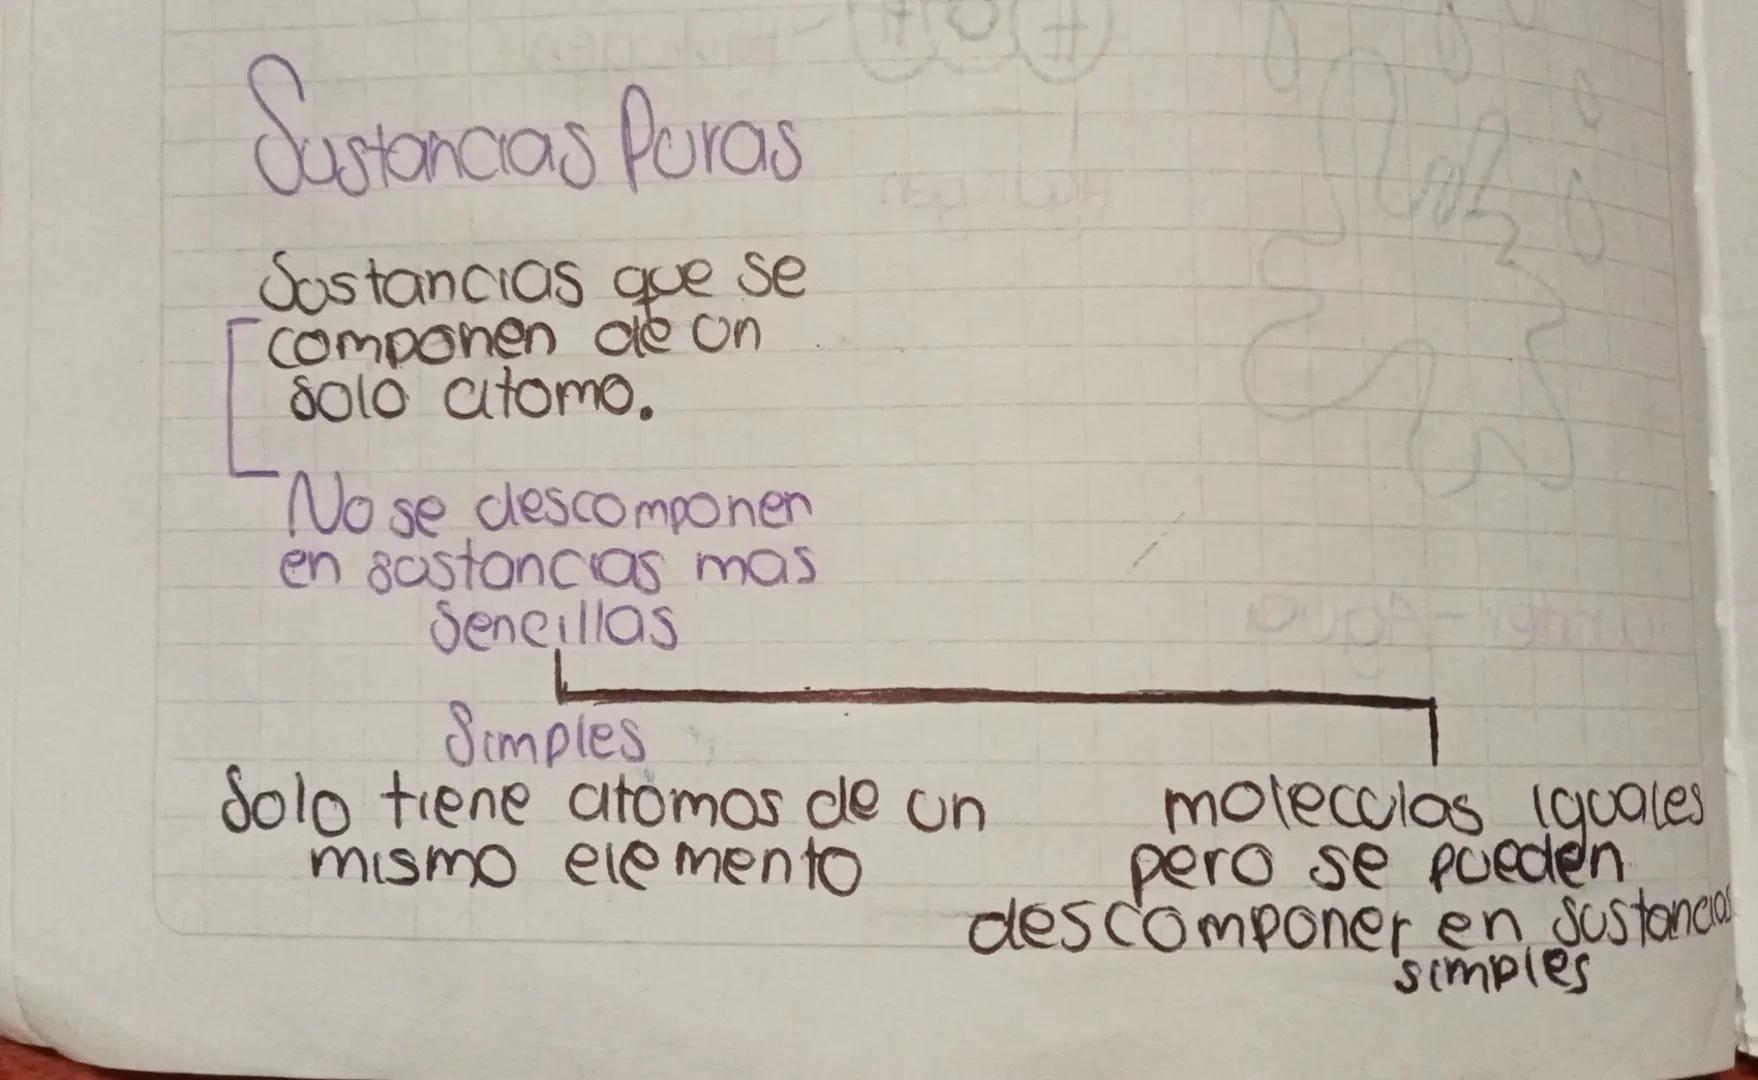 Sustancias Puras
Sustancias que se
componen de un
solo atomo.
No se descomponen
en sustancias mas
sencillas
Simples
Solo tiene atomos de un
mismo elemento
moleculas iguales
pero se pueden
descomponer en sustancias
simples